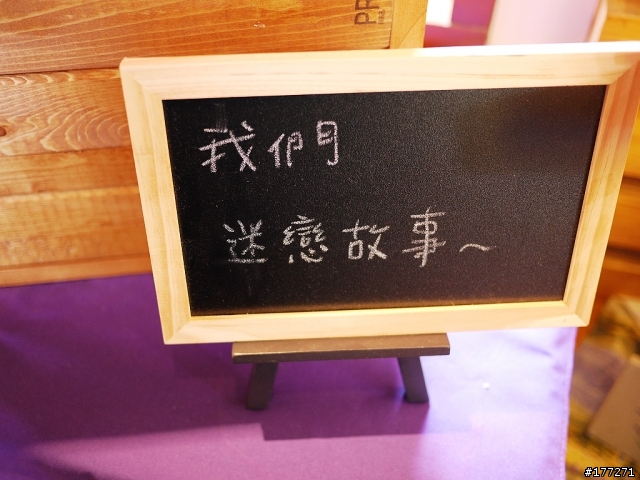 我們
迷戀故事～
#177271